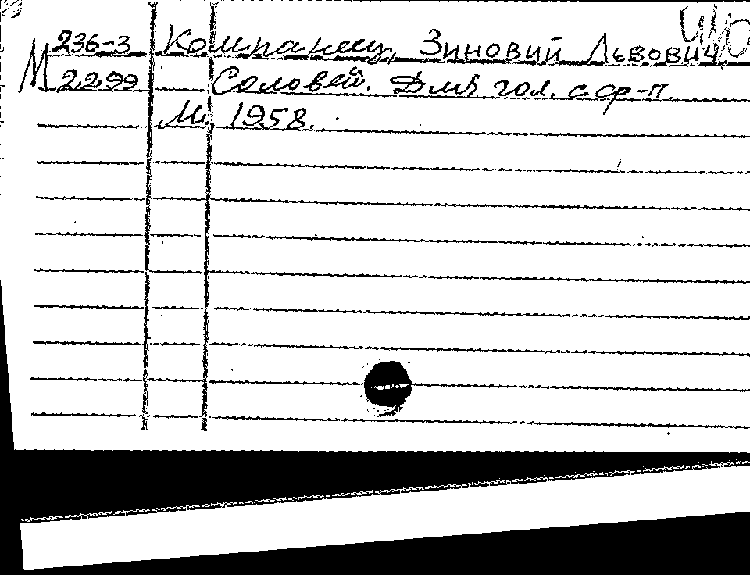 236-3 Компанеец, Зиновий Львович
М 2299 Соловей. Для гол. с ф-п.
М., 1958.